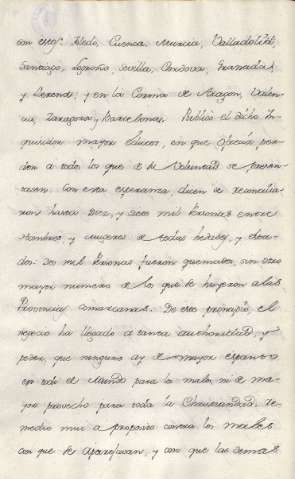 con esto Toledo, Cuenca, Murcia, Valladolid,
Santiago, Logroño, Sevilla, Cordova, Granada,
y Llerena; y en la Corona de Aragon, Valen-
cia, Zaragoza y Barcelona. Publicó el dicho In-
quisidor mayor edictos, en que ofrecia per-
don a todos los que de su Voluntad se presen-
tasen. Con esta esperanza dicen se reconcilia-
ron hasta Diez, y siete mil Personas entre
Hombres y mugeres de todas hedades, y estados
dos: Dos mil Personas fueron quemadas, sin otro
mayor numero de lo que se huyeron a las
Provincias comarcanas. De este principio, el
negocio ha llegado a tanta authoridad, y
poder, que ninguno ay de mayor espanto
en todo el Mundo para los malos, ni de ma-
yor provecho para toda la Christiandad. Re-
medio mui a proposito contra los males
con que se aparejavan, y con que las demas